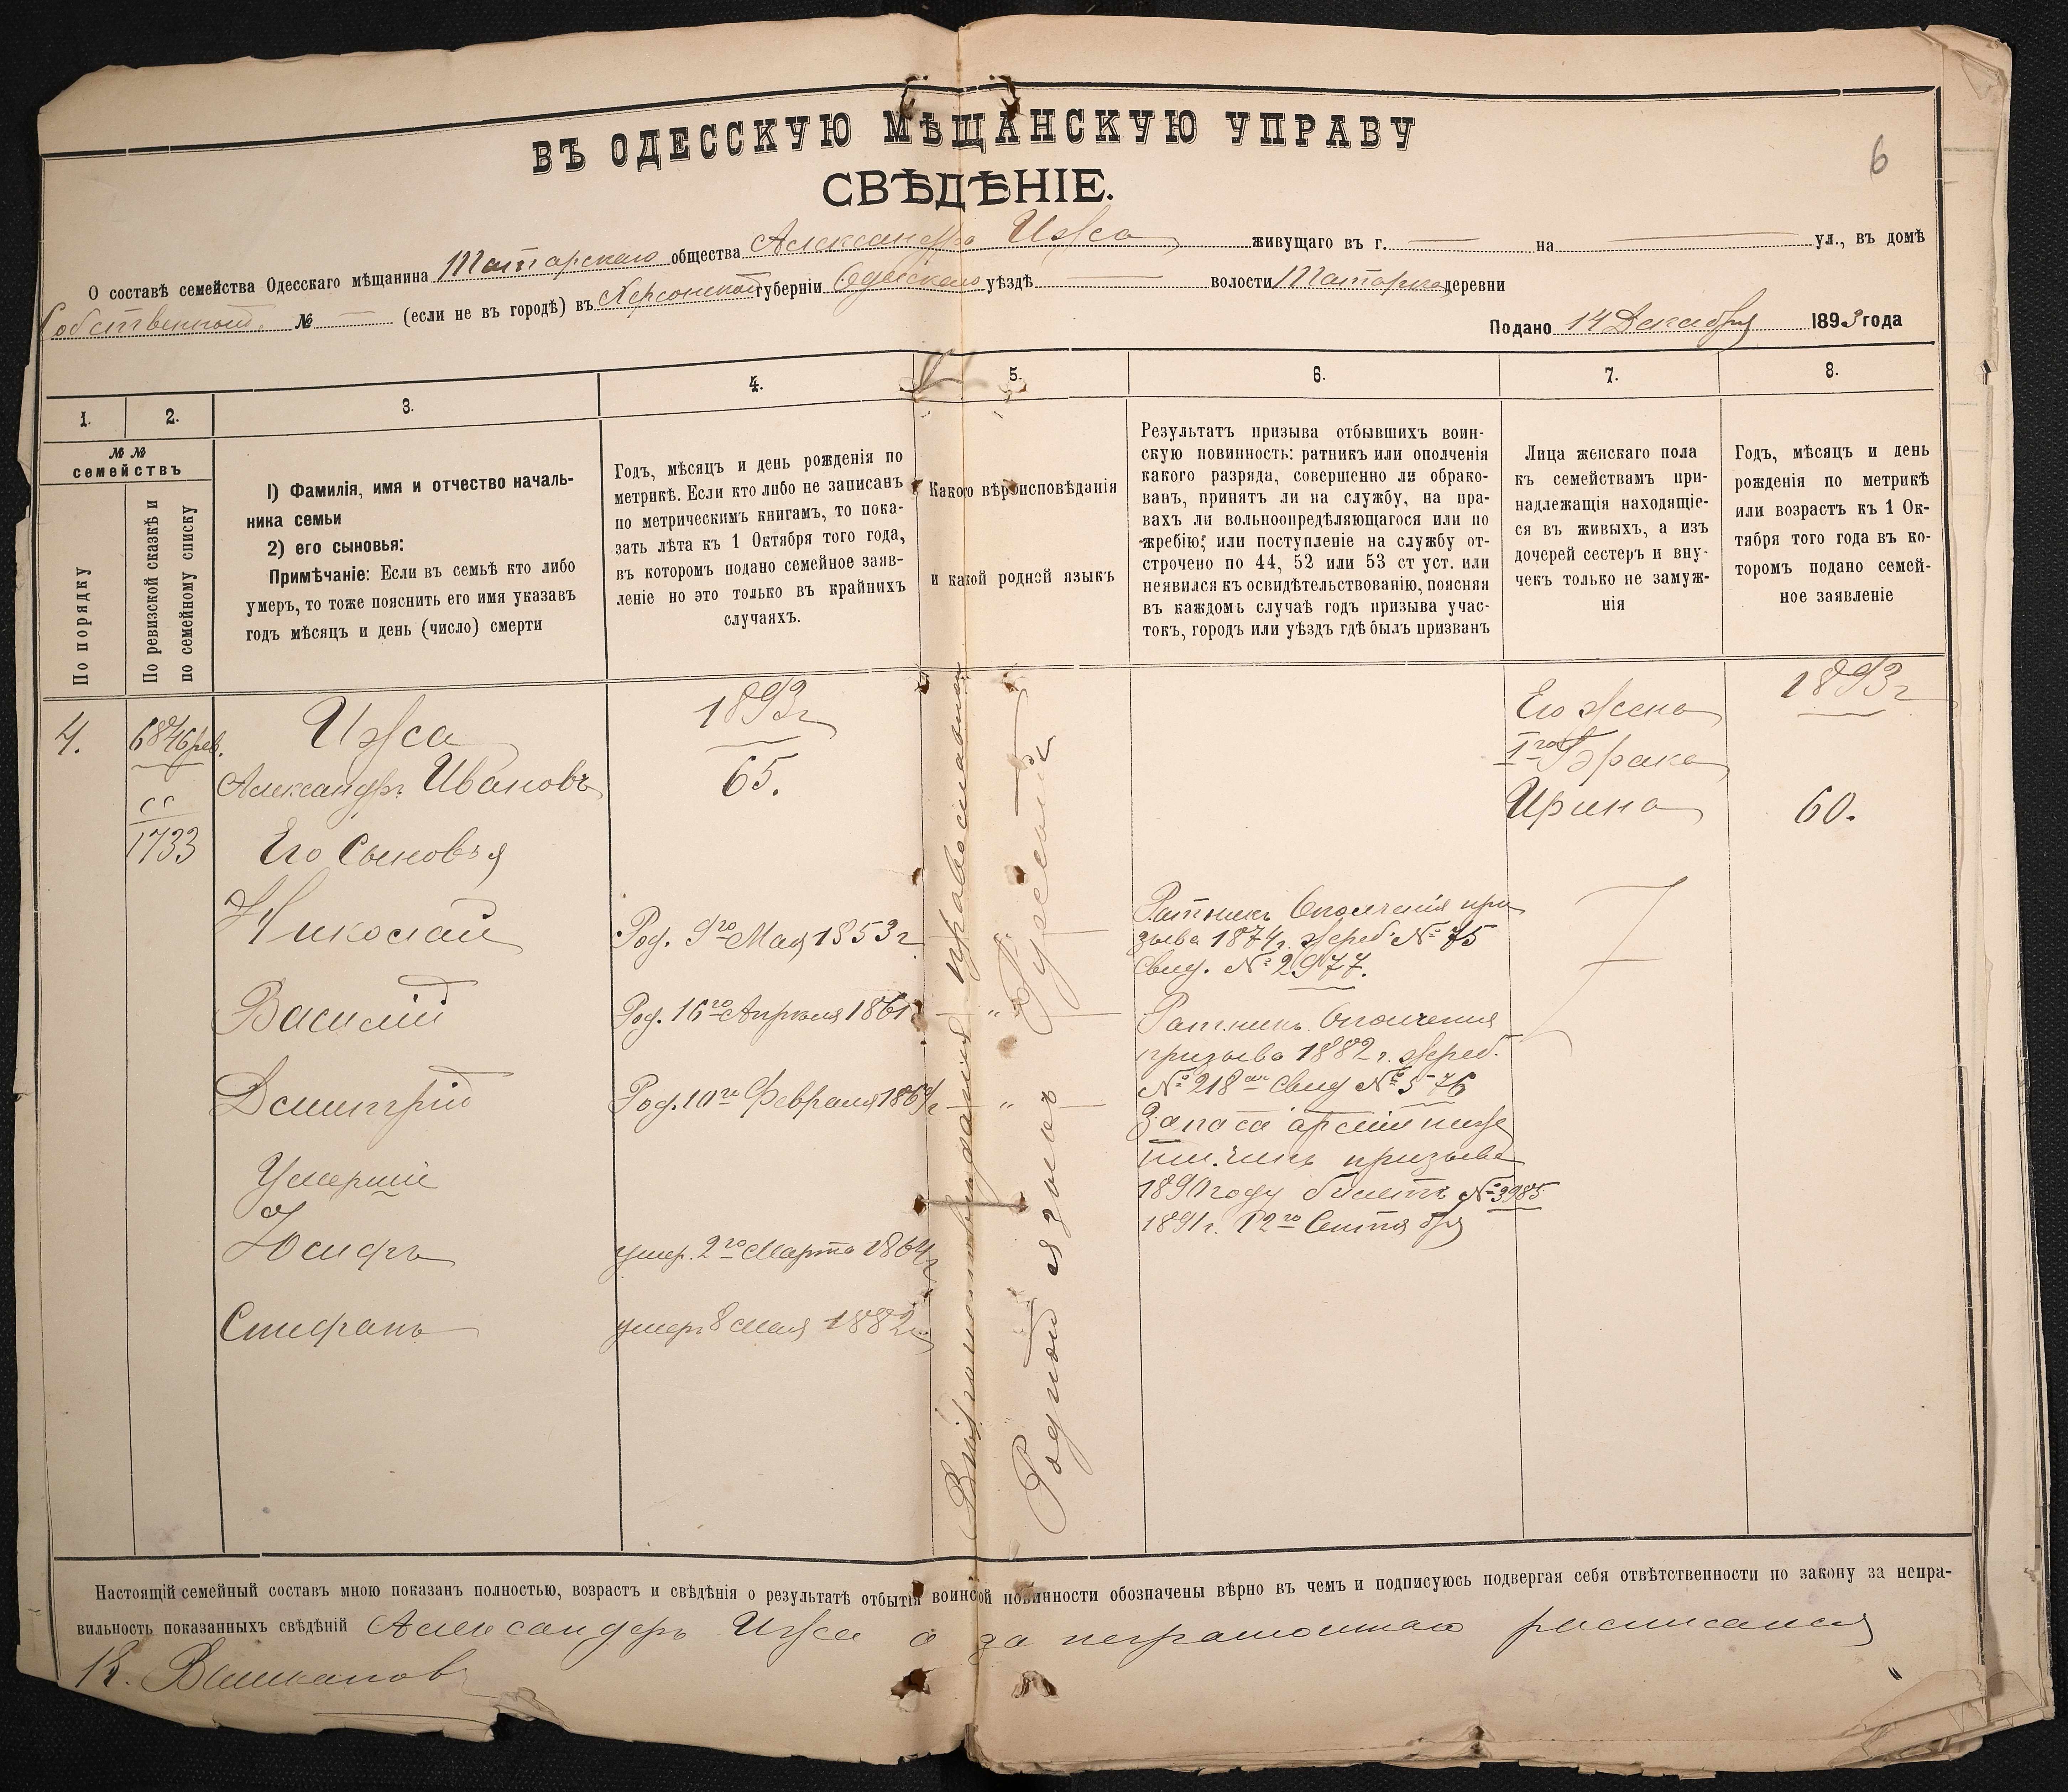 6
ВЪ ОДЕССКУЮ МѢЩАНСКУЮ УПРАВУ
СВѢДѢНІЕ.
О составѣ семейства Одесскаго мѣщанина Татарскаго общества Александра Ижа живущаго въ г. — на — ул., въ домѣ
Собственный № — (если не въ городѣ) въ Херсонской губерніи Одесскаго уѣздѣ — волости Татарка деревни
Подано 14 Декабря 1893 года
1. 2. 3. 4. 5. 6. 7. 8.
№№ семействъ
По порядку
По ревизской сказкѣ и
по семейному списку
I) Фамилія, имя и отчество началь-
ника семьи
2) его сыновья:
Примѣчаніе: Если въ семьѣ кто либо
умеръ, то тоже пояснить его имя указавъ
годъ мѣсяцъ и день (число) смерти
Годъ, мѣсяцъ и день рожденія по
метрикѣ. Если кто либо не записанъ
по метрическимъ книгамъ, то пока-
зать лѣта къ 1 Октября того года,
въ которомъ подано семейное заяв-
леніе но это только въ крайнихъ
случаяхъ.
Какого вѣроисповѣданія
и какой родной языкъ
Результатъ призыва отбывшихъ воин-
скую повинность: ратникъ или ополченія
какого разряда, совершенно ли обрако-
ванъ, принятъ ли на службу, на пра-
вахъ ли вольноопредѣляющагося или по
жребію; или поступленіе на службу от-
строчено по 44, 52 или 53 ст уст. или
неявился къ освидѣтельствованію, поясняя
въ каждомъ случаѣ годъ призыва учас-
токъ, городъ или уѣздъ гдѣ былъ призванъ
Лица женскаго пола
къ семействамъ при-
надлежащія находящіе-
ся въ живыхъ, а изъ
дочерей сестеръ и вну-
чекъ только не замуж-
нія
Годъ, мѣсяцъ и день
рожденія по метрикѣ
или возрастъ къ 1 Ок-
тября того года въ ко-
торомъ подано семей-
ное заявленіе
4.
6846 рев.
сс
1733
Ижа
Александръ Ивановъ
Его Сыновья
Николай
Василій
Дмитрій
Умершіе
Юсифъ
Стифанъ
1893г
65.
Род. 9го Мая 1853 г
Род. 16го Апреля 1861
Род. 10го Февраля 1864 г
умер. 2го Марта 1864 г
умеръ 8 мая 1882 г.
Вѣроисповѣданія православнаго
Родной языкъ Русскій
Ратникъ Ополченія при
зыва 1874г. жреб. № 75
Свид. № 2977.
Ратникъ Ополчения
призыва 1882 г. жреб.
№ 218 Свид № 576
Запаса арміи ниж
чинъ призыва
1890 году билетъ № 3985
1891г. 12го Сентября
Его жена
Iго Брака
Ирина
1893г
60.
Настоящій семейный составъ мною показанъ полностью, возрастъ и свѣдѣнія о результатѣ отбытія воинской повинности обозначены вѣрно въ чемъ и подписуюсь подвергая себя отвѣтственности по закону за непра-
вильность показанныхъ свѣдѣній Александеръ Ижа а за неграмотнаго росписался